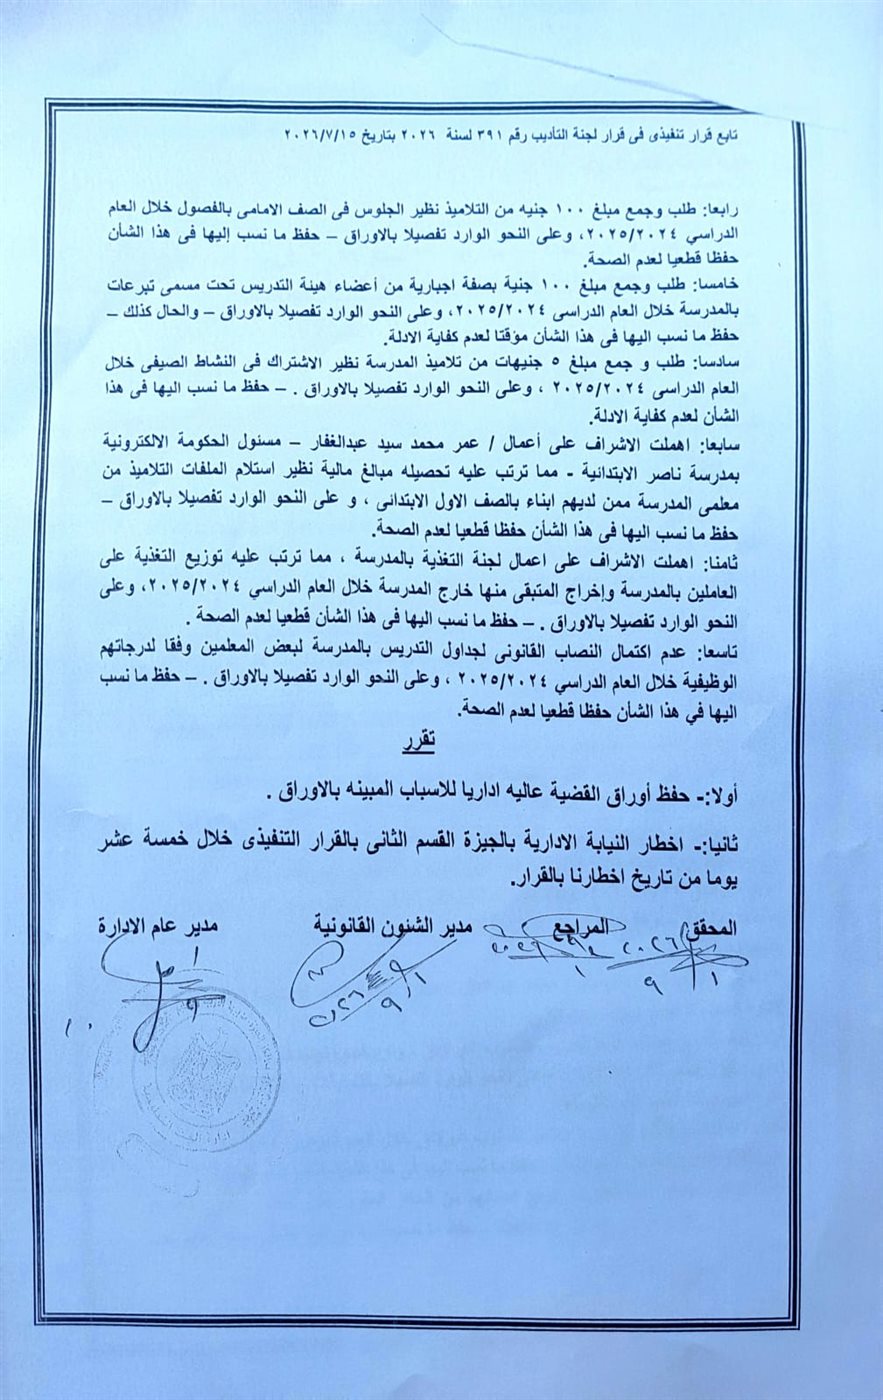 تابع قرار تنفيذى فى قرار لجنة التأديب رقم ٣٩١ لسنة ٢٠٢٦ بتاريخ ٢٠٢٦/٧/١٥
رابعا: طلب وجمع مبلغ ١٠٠ جنيه من التلاميذ نظير الجلوس فى الصف الامامى بالفصول خلال العام
الدراسي ٢٠٢٥/٢٠٢٤، وعلى النحو الوارد تفصيلا بالاوراق – حفظ ما نسب إليها فى هذا الشأن
حفظا قطعيا لعدم الصحة.
خامسا: طلب وجمع مبلغ ١٠٠ جنية بصفة اجبارية من أعضاء هيئة التدريس تحت مسمى تبرعات
بالمدرسة خلال العام الدراسى ٢٠٢٥/٢٠٢٤، وعلى النحو الوارد تفصيلا بالاوراق – والحال كذلك –
حفظ ما نسب اليها فى هذا الشأن مؤقتا لعدم كفاية الادلة.
سادسا: طلب و جمع مبلغ ٥ جنيهات من تلاميذ المدرسة نظير الاشتراك فى النشاط الصيفى خلال
العام الدراسى ٢٠٢٥/٢٠٢٤ ، وعلى النحو الوارد تفصيلا بالاوراق . – حفظ ما نسب اليها فى هذا
الشأن لعدم كفاية الادلة.
سابعا: اهملت الاشراف على أعمال / عمر محمد سيد عبدالغفار – مسئول الحكومة الالكترونية
بمدرسة ناصر الابتدائية - مما ترتب عليه تحصيله مبالغ مالية نظير استلام الملفات التلاميذ من
معلمى المدرسة ممن لديهم ابناء بالصف الاول الابتدائى ، و على النحو الوارد تفصيلا بالاوراق –
حفظ ما نسب اليها فى هذا الشأن حفظا قطعيا لعدم الصحة.
ثامنا: اهملت الاشراف على اعمال لجنة التغذية بالمدرسة ، مما ترتب عليه توزيع التغذية على
العاملين بالمدرسة وإخراج المتبقى منها خارج المدرسة خلال العام الدراسي ٢٠٢٥/٢٠٢٤، وعلى
النحو الوارد تفصيلا بالاوراق . – حفظ ما نسب اليها فى هذا الشأن قطعيا لعدم الصحة .
تاسعا: عدم اكتمال النصاب القانونى لجداول التدريس بالمدرسة لبعض المعلمين وفقا لدرجاتهم
الوظيفية خلال العام الدراسي ٢٠٢٥/٢٠٢٤ ، وعلى النحو الوارد تفصيلا بالاوراق . – حفظ ما نسب
اليها في هذا الشأن حفظا قطعيا لعدم الصحة.
تقرر
أولا:- حفظ أوراق القضية عاليه اداريا للاسباب المبينه بالاوراق .
ثانيا:- اخطار النيابة الادارية بالجيزة القسم الثانى بالقرار التنفيذى خلال خمسة عشر
يوما من تاريخ اخطارنا بالقرار.
المحقق المراجع مدير الشئون القانونية مدير عام الادارة